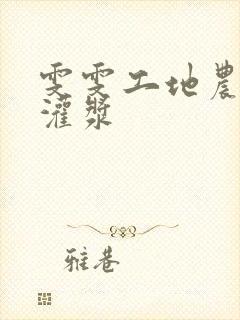 雯雯工地農
灌漿
雅巷